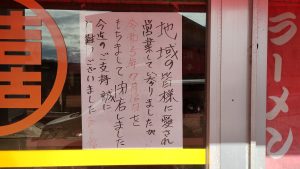 ラーメン
地域の皆様に愛され
営業して参りましたが
令和 年 月 日を
もちまして閉店しました
今迄のご支持誠に
有難うございました